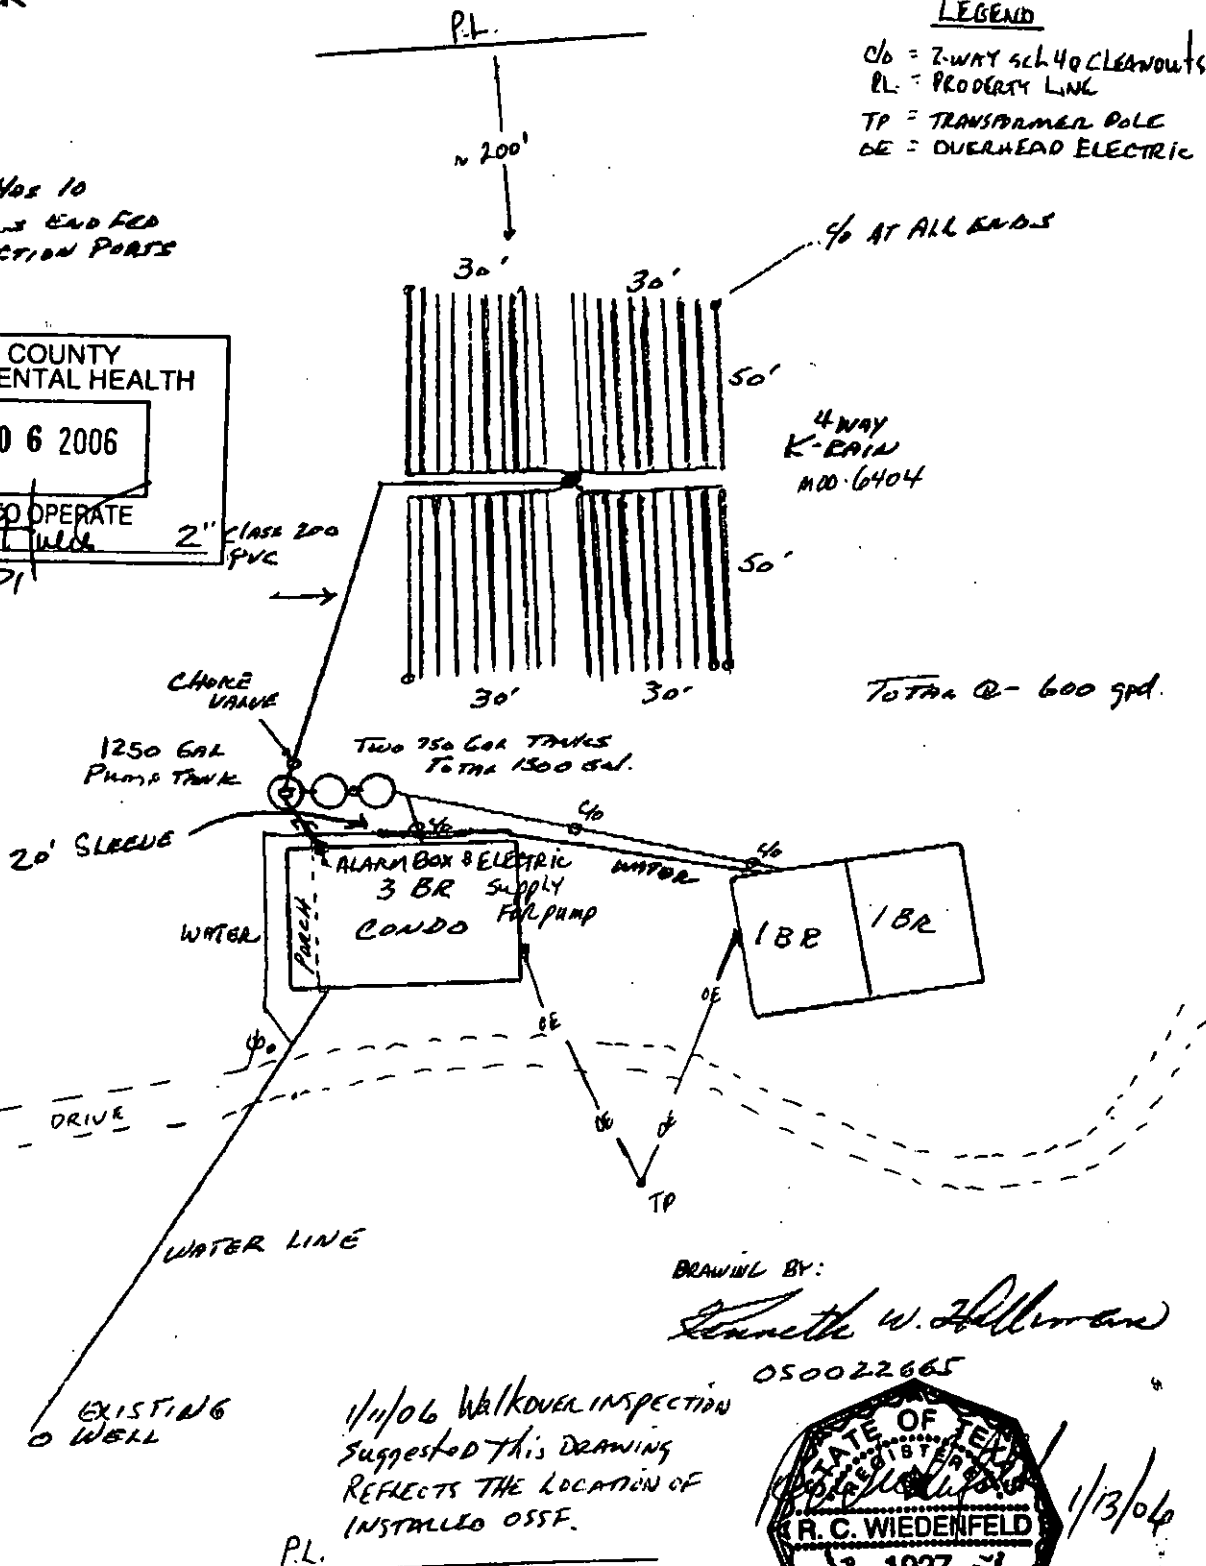 P.L.
LEGEND
C/O = 2-WAY SCH 40 CLEANOUTS
PL. = PROPERTY LINE
TP = TRANSFORMER POLE
OE = OVERHEAD ELECTRIC
~ 200'
10
END FED
CTION PORTS
C/O AT ALL ENDS
30'
30'
50'
COUNTY
ENTAL HEALTH
0 6 2006
TO OPERATE
4 WAY
K-RAIN
MOD. 6404
2" CLASS 200
PVC
50'
30'
30'
TOTAL Q - 600 gpd.
CHOKE
VALVE
1250 GAL
PUMP TANK
TWO 750 GAL TANKS
TOTAL 1500 GAL.
20' SLEEVE
C/O
C/O
C/O
WATER
ALARM BOX & ELECTRIC
Supply
FOR pump
3 BR
CONDO
PORCH
WATER
1 BR
1 BR
OE
OE
OE
OE
DRIVE
TP
WATER LINE
DRAWING BY:
Kenneth W.
OS0022665
EXISTING
WELL
1/11/06 Walkover INSPECTION
Suggested This DRAWING
REFLECTS THE LOCATION OF
INSTALLED OSSF.
P.L.
STATE OF TEXAS
REGISTERED
R. C. WIEDENFELD
1927
1/13/06